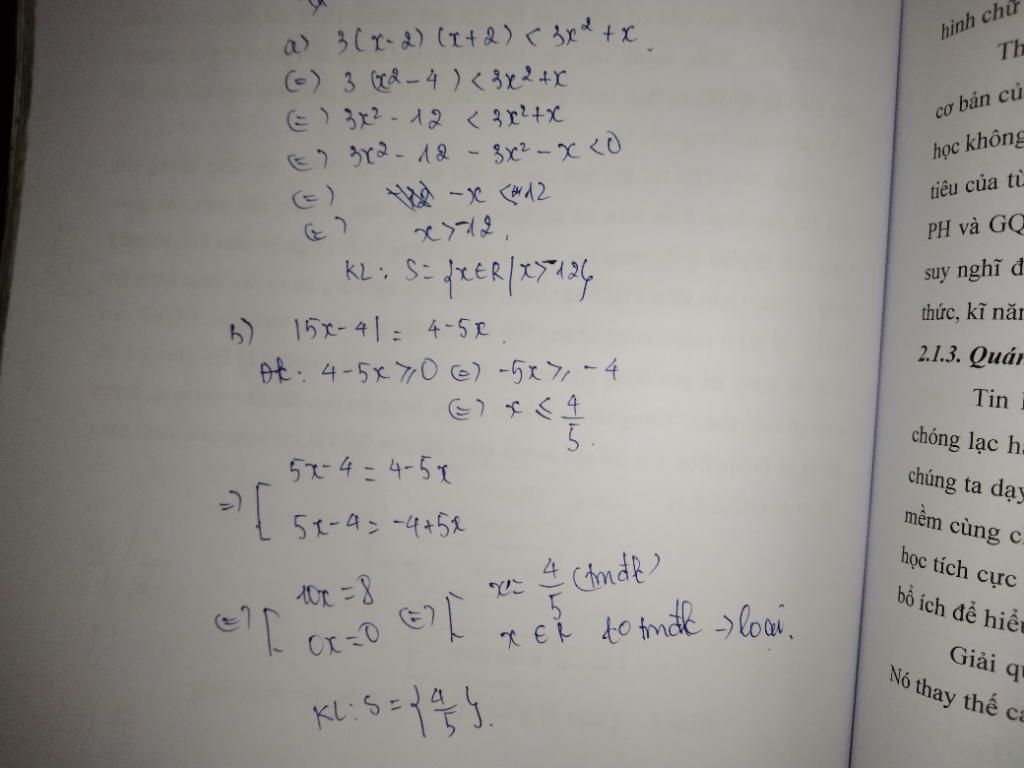 a) 3(x-2)(x+2) < 3x² + x.
(=) 3 (x² - 4) < 3x² + x
(=) 3x² - 12 < 3x² + x
(=) 3x² - 12 - 3x² - x < 0
(=) -x < 12
(=) x > -12.
KL: S = {x ∈ R | x > -12}
b) |5x - 4| = 4 - 5x.
ĐK: 4 - 5x ≥ 0 (=) -5x ≥ -4
(=) x ≤ 4/5.
=) [ 5x - 4 = 4 - 5x
5x - 4 = -4 + 5x
(=) [ 10x = 8 (=) [ x = 4/5 (tmđk)
0x = 0 x ∈ R ko tmđk → loại.
KL: S = {4/5}.
hình chữ
Th
cơ bản củ
học không
tiêu của từ
PH và GQ
suy nghĩ đ
thức, kĩ năn
2.1.3. Quán
Tin
chóng lạc h
chúng ta dạy
mềm cùng c
học tích cực
bổ ích để hiểu
Giải qu
Nó thay thế cá